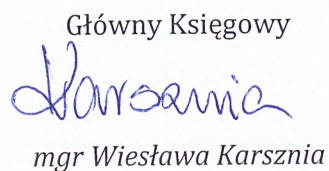 Główny Księgowy
Karsznia
mgr Wiesława Karsznia